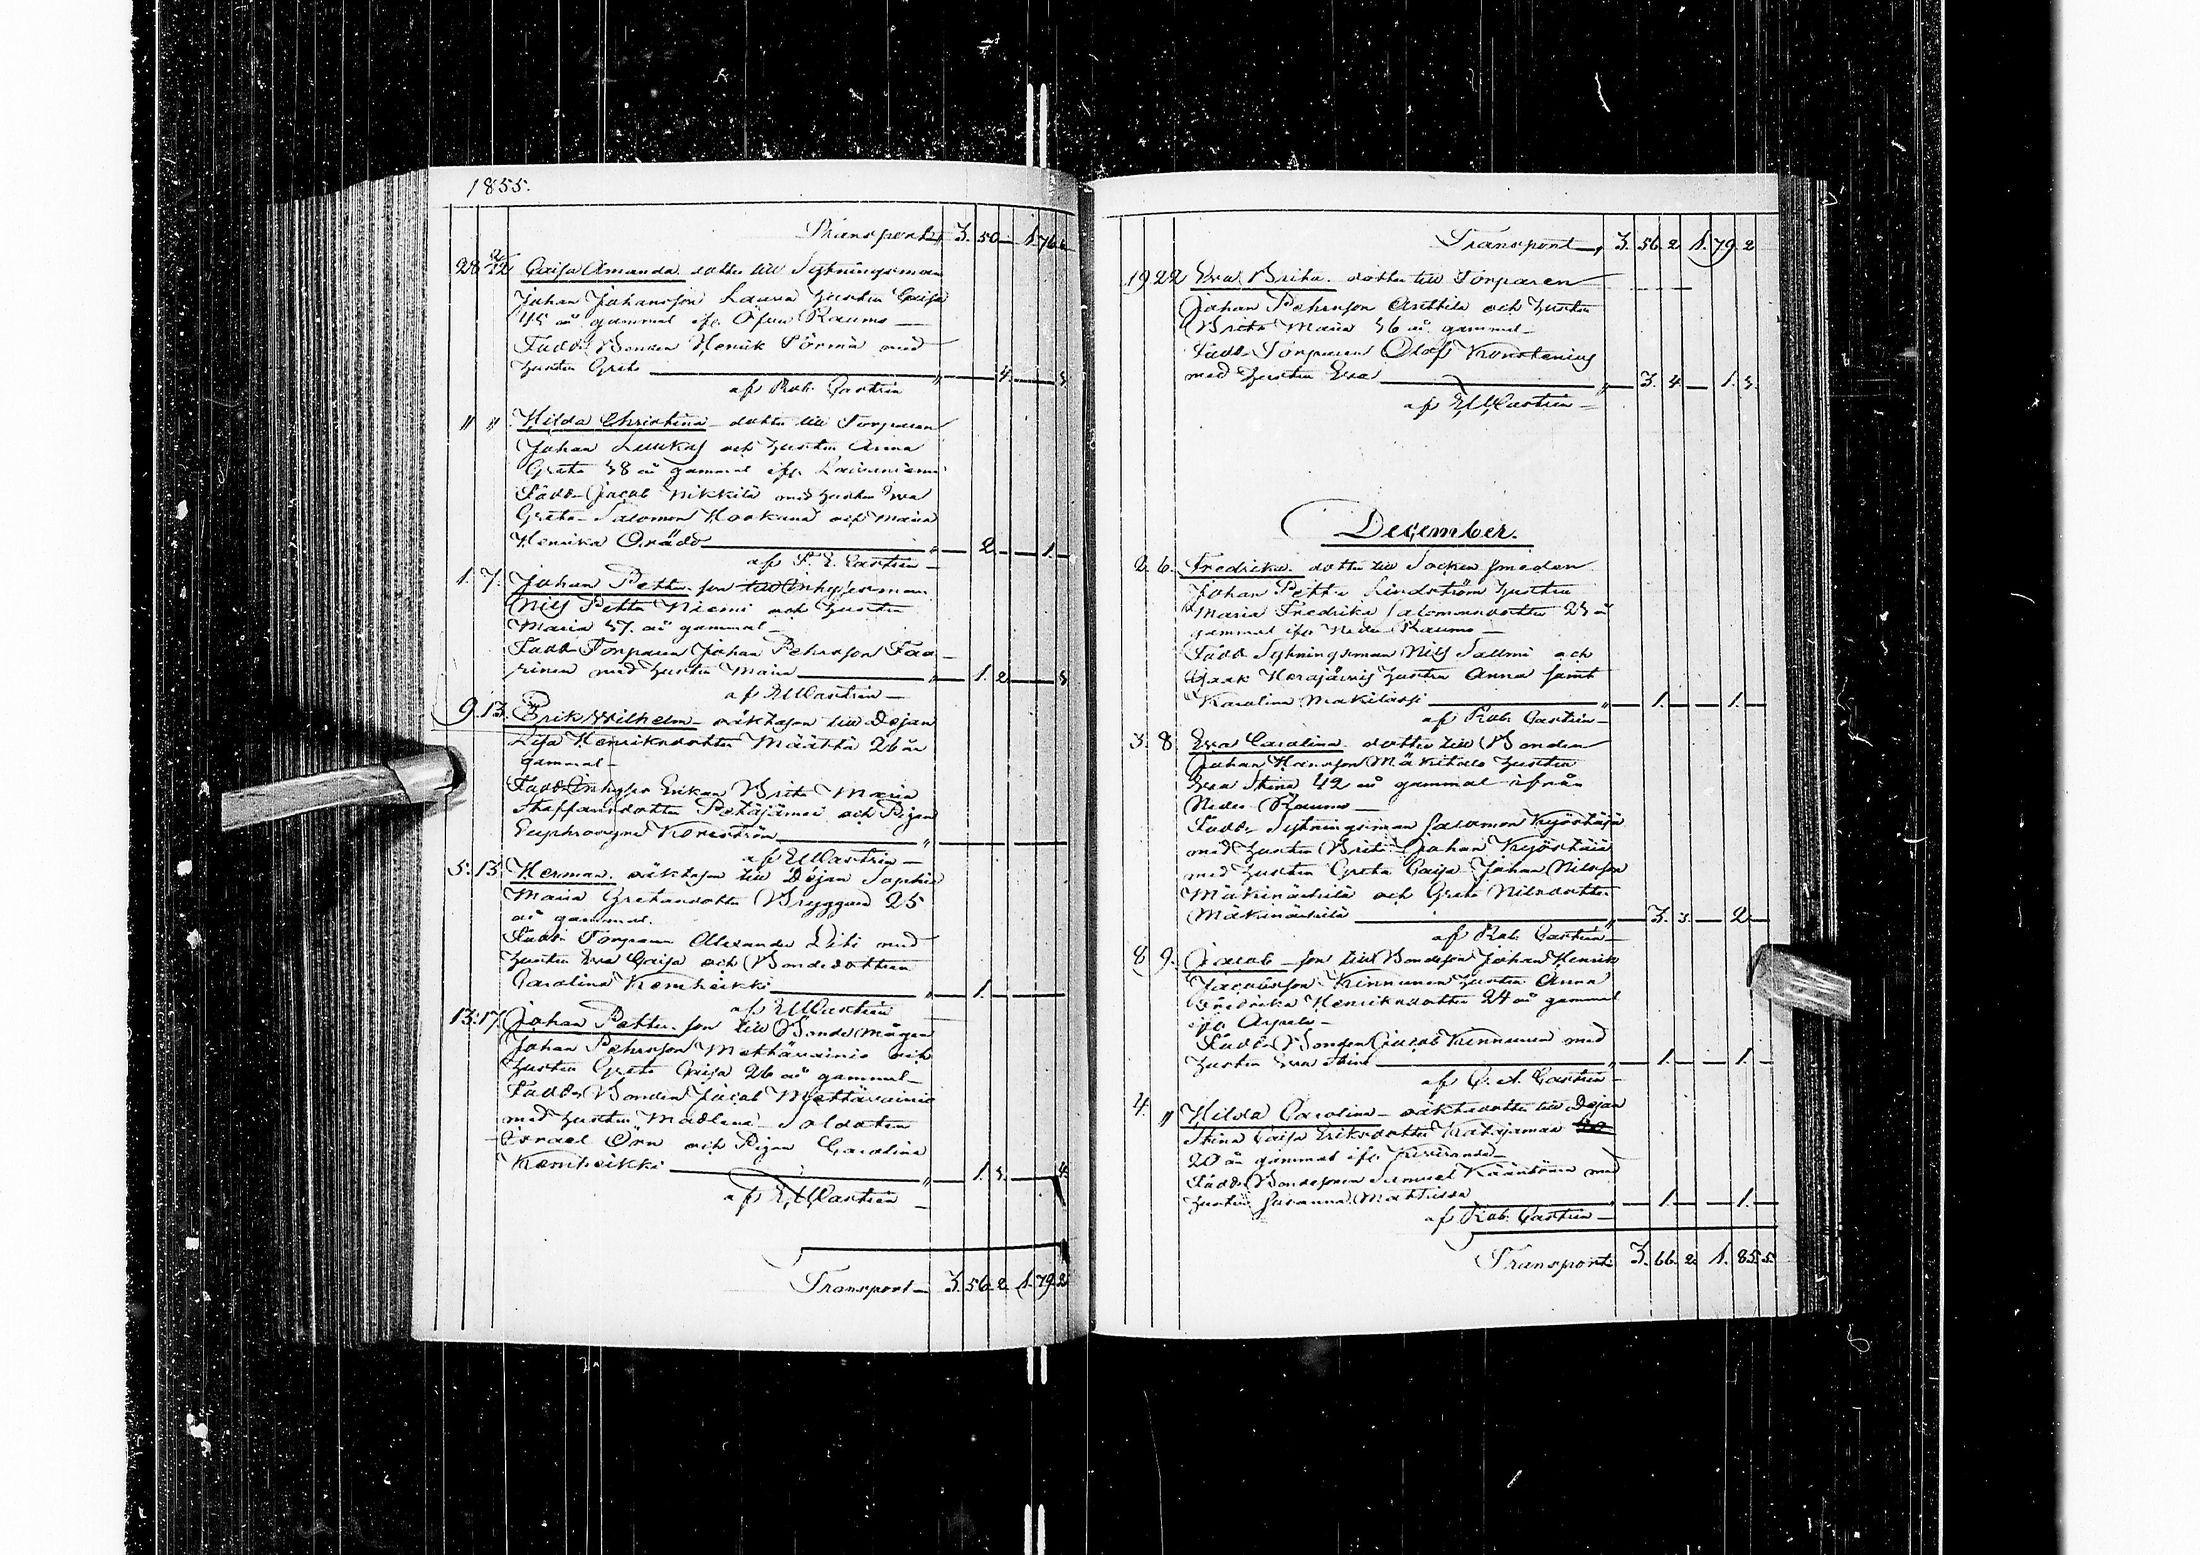 1855.
Transport, 3. 50 — 1. 76.
28 Caisa Amanda dotter till Sytningsman
Johan Johansson Laura hustru Caisa
45 år gammal ifr. Öfver Raumo —
Fadd. Bonden Henrik Sormu med
hustru Greta — " — 4. — 3.
af Rob. Castrén
" " Hilda Christina dotter till Torparen
Johan Luukas och hustru Anna
Greta 38 år gammal ifr.
Fadd. Jacob Nikkilä med hustru Eva
Greta. Salomon och Maria
Henrika — " — 2. — 1. —
af Castrén —
1. 7. Johan Petter son till Inhysesman
Nils Petter Niemi och hustru
Maria 37. år gammal —
Fadd. Torparen Johan Pehrsson Faa-
rinen med hustru Maria — " — 1. 2. — 3
af Castrén —
9. 13. Erik Wilhelm oäkta son till Dejan
Lisa Henriksdotter Määttä 26 år
gammal —
Fadd. Inhyses Erikan Brita Maria
Staffansdotter Petäjämaa och Pigan
Euphrosyne — " —
af Castrén —
5. 13. Herman oäkta son till Dejan Sophia
Maria Gretasdotter Bryggare 25
år gammal.
Fadd. Torparen Alexander Liti med
hustru Eva Caisa och Bondedottren
Carolina Kemheikki — " — 1. —
af Castrén
13. 17. Johan Petter son till Bonde mågen
Johan Pehrsson Mettävainio och
hustru Greta Caisa 26 år gammal —
Fadd. Bonden Jacob Mettävainio
med hustru Madlena Soldaten
Israel Örn och Pigan Carolina
Kemheikki — " — 1. 3. — 4
af Castrén —
Transport — 3. 56. 2 1. 79. 2
Transport, 3. 56. 2 1. 79. 2
19 22 Eva Brita dotter till Torparen
Johan Pehrsson Anttila och hustru
Brita Maria 36 år gammal —
Fadd. Torparen Olof
med hustru Eva — " — 3. 4. — 1. 3.
af Castrén —
December.
2. 6. Fredrika dotter till Socken smeden
Johan Petter Lindström hustru
Maria Fredrika Salomonsdotter 23 år
gammal ifr. Neder Raumo —
Fadd. Sytningsman Nils Salmi och
Isaak Herajärvi hustru Anna samt
Karolina — " — 1. — 1. —
af Rob. Castrén —
3. 8. Eva Carolina dotter till Bonden
Johan Hansson Mäkitalo hustru
Eva Stina 42 år gammal ifrån
Neder Raumo —
Fadd. Sytningsman Salomon Kyöstäjä
med hustru Brita Johan Kyöstäjä
med hustru Greta Caisa Johan Nilsson
Mäkinärhilä och Greta Nilsdotter
Mäkinärhilä — " — 3. 3. — 2 —
af Rob. Castrén —
8. 9. Jacob son till Bondeson Johan Henrik
Jacobsson Kinnunen hustru Anna
Fredrika Henriksdotter 24 år gammal
ifr. —
Fadd. Bonden Jacob Kinnunen med
hustru Eva Stina — " — 1. — 1. —
af Castrén —
4. " Hilda Carolina oäkta dotter till Dejan
Stina Caisa Eriksdotter Katajamaa
20 år gammal ifr. —
Fadd. Bondesonen Samuel Kääntönen med
hustru Susanna — " — 1. — 1. —
af Rob. Castrén —
Transport 3. 66. 2. 1. 85. 5.